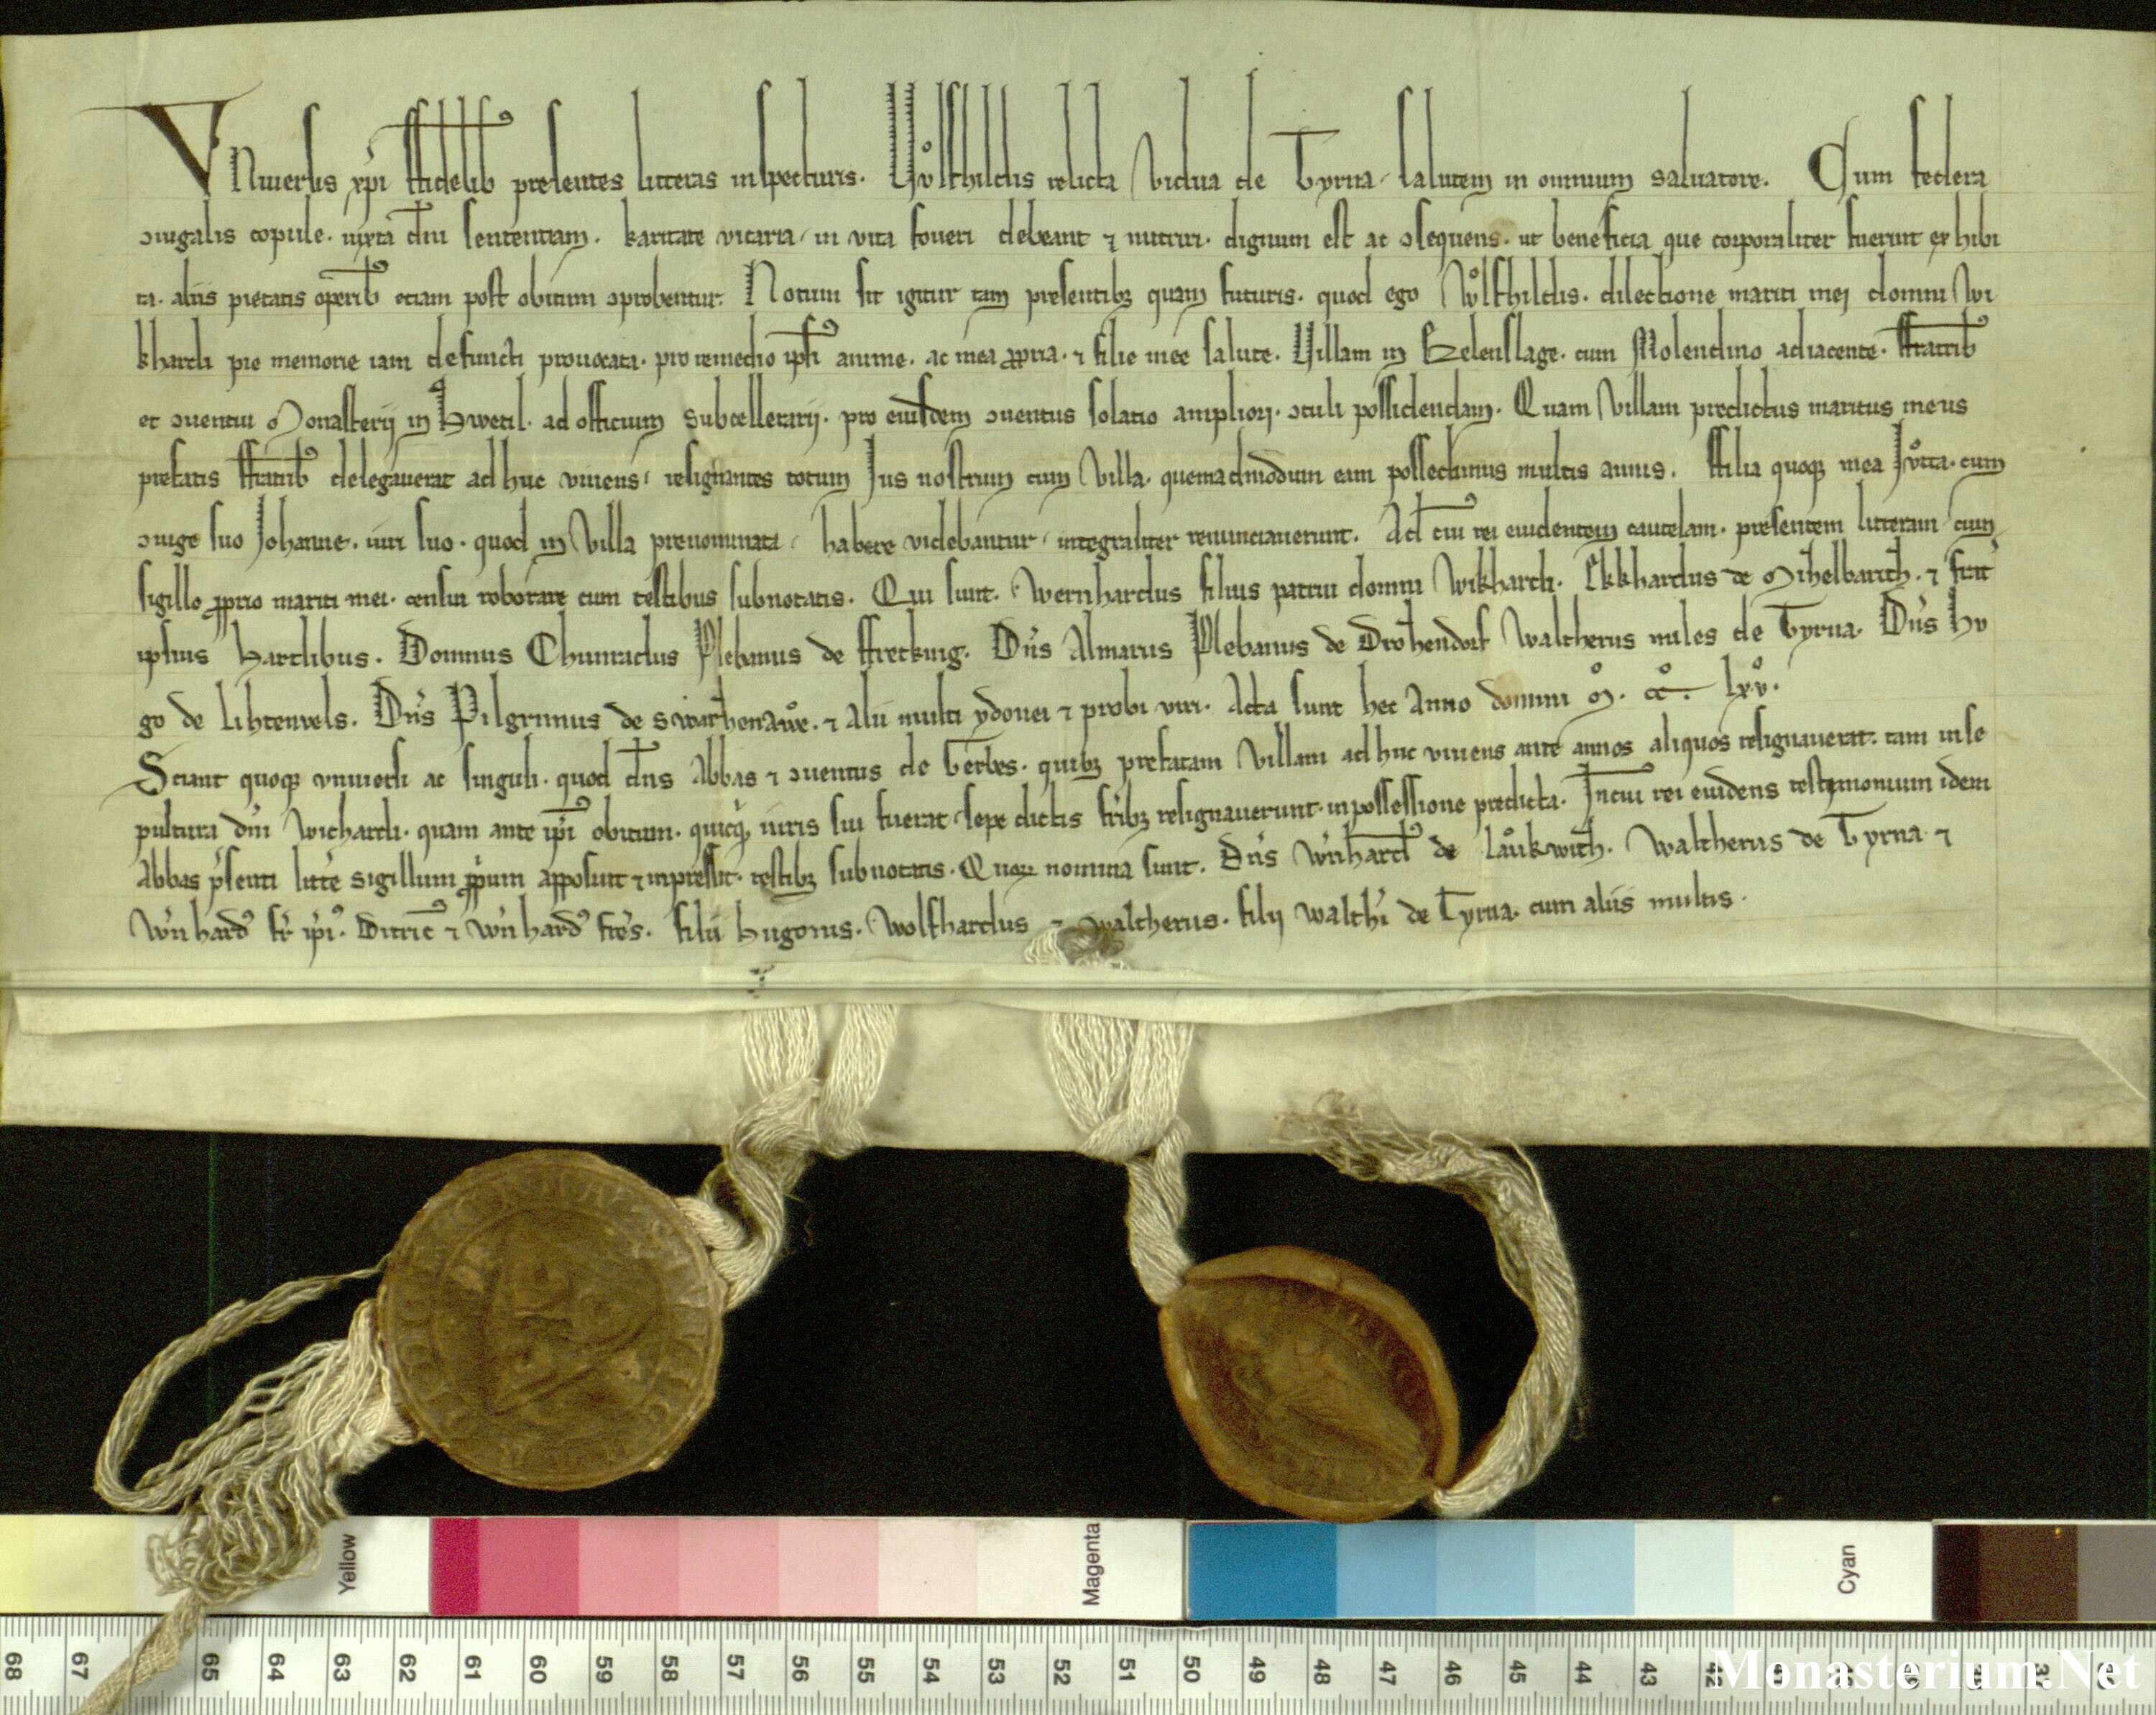 VNiuersis xp̄i ffidelibꝰ presentes litteras inspecturis. Wͦlfhildis relicta Vidua de Tyrna. salutem in omnium saluatore. Cum federa
ꝯiugalis copule. iuxta dn̄i sententiam. karitate vicaria. in vita foueri debeant ⁊ nutriri. dignum est ac ꝯsequens. ut beneficia que corporaliter fuerint exhibi
ta. aliis pietatis operibꝰ etiam post obitum ꝯprobentur. Notum sit igitur tam presentibꝫ quam futuris. quod ego Wͦlfhildis. dilectione mariti mei domni Wi
khardi pie memorie iam defuncti prouocata. pro remedio ipsiꝰ anime. ac mea ꝓpria. ⁊ filie mee salute. Villam in Ezelenslage. cum Molendino adiacente. ffratribꝰ
et ꝯuentui Monasterij in Hwetil. ad officium Subcellerarij. pro eiusdem ꝯuentus solatio ampliori. ꝯtuli possidendam. Quam Villam predictus maritus meus
prefatis ffratribꝰ delegauerat adhuc viuens. resignantes totum Jus nostrum cum Villa. quemadmodum eam possedimus multis annis. ffilia quoqꝫ mea Jvͦtta. cum
ꝯiuge suo Johanne. iuri suo. quod in Villa prenominata. habere videbantur. integraliter renunciauerunt. Ad cuiꝰ rei euidentem cautelam. presentem litteram. cum
sigillo ꝓprio mariti mei. censui roborare cum testibus subnotatis. Qui sunt. Wernhardus filius patrui domni Wikhardi. Ekkhardus de Mihelbarih. ⁊ frat̉
ipsius Hartlibus. Domnus Chunradus Plebanus de ffrecking. Dn̄s Almarus Plebanus de Drohendorf Waltherus miles de Tyrna. Dn̄s Hu
go de Lihtenvels. Dn̄s Pilgrimus de Swarhenawͦe. ⁊ alii multi ydonei ⁊ probi viri. Acta sunt hec Anno domini Mͦ. ccͦ. lxvͦ.
Sciant quoqꝫ vniuersi ac singuli. quod dn̄s Abbas ⁊ ꝯuentus de Berbes. quibꝫ prefatam Villam adhuc viuens ante annos aliquos resignauerat. tam in se
pultura dn̄i Wichardi. quam ante ip̄iꝰ obitum. quicqͥd iuris sui fuerat. sepe dictis fr̄ibꝫ resignauerunt. in possessione predicta. In cuiꝰ rei euidens testimonium idem
Abbas p̄senti litt̉e sigillum ꝓprium apposuit ⁊ inpressit. testibꝫ subnotatis. Quoꝝ nomina sunt. Dn̄s Wn̉hardꝰ de Laukwith. Waltherus de Tyrna ⁊
Wn̉hardꝰ fr̄ ip̄iꝰ. Ditricꝰ ⁊ Wn̉hardꝰ fr̄es. filii Hugonis. Wolfhardus ⁊ Waltherus. filij Walthỉ de Tyrna. cum aliis multis.
Yellow
Magenta
Cyan
68 67 65 64 63 62 61 60 59 58 57 56 55 54 53 52 51 50 49 48 47 46 45 44 43 42
Monasterium.Net